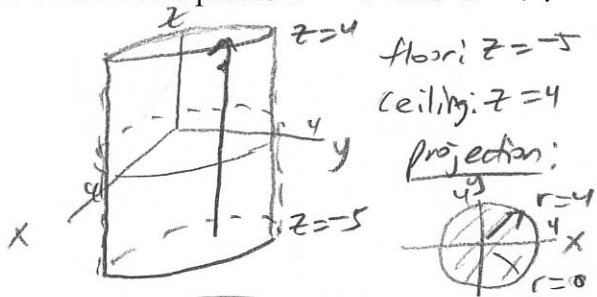 z
z=4
4
y
4
x
z=-5
floor: z=-5
ceiling: z=4
projection:
4 y
r=4
4
x
r=0